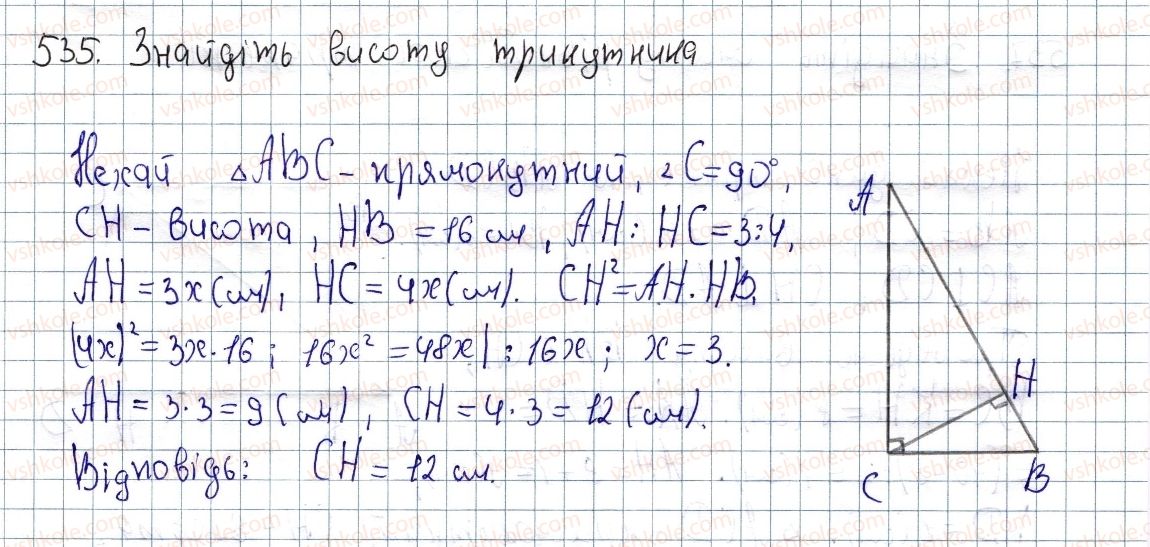 535. Знайдіть висоту трикутника
Нехай △ABC – прямокутний, ∠C=90°,
CH – висота, HB = 16 см, AH : HC = 3:4,
AH = 3x (см), HC = 4x (см). CH² = AH · HB,
(4x)² = 3x · 16 ; 16x² = 48x | : 16x ; x = 3.
AH = 3 · 3 = 9 (см), CH = 4 · 3 = 12 (см).
Відповідь: CH = 12 см.
A
H
C
B
vshkole.com